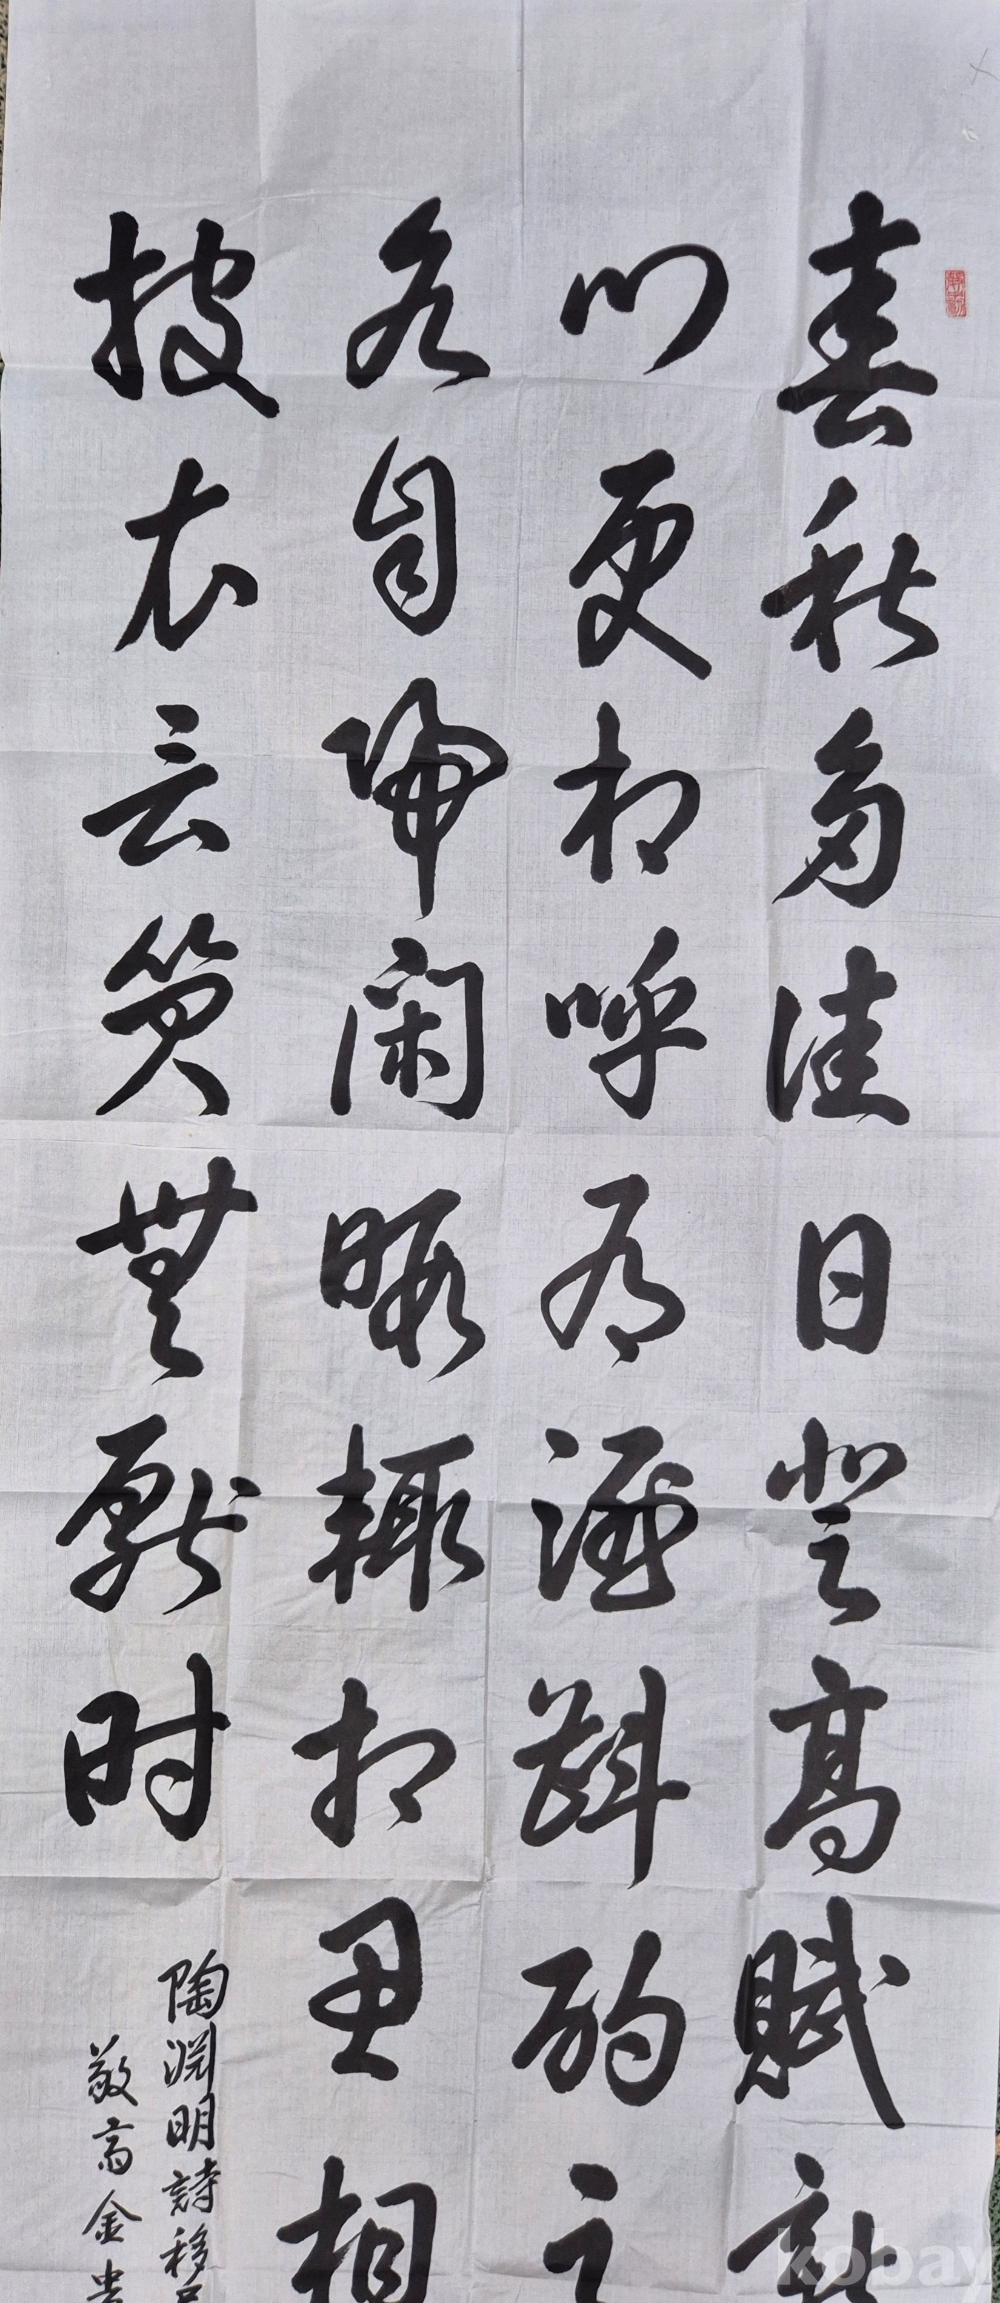 春秋多佳日登高賦新
門更相呼有酒斟酌之
各自歸閑暇輒相思相
披衣言笑無厭时
陶渊明詩移居
敬斋金
kobay